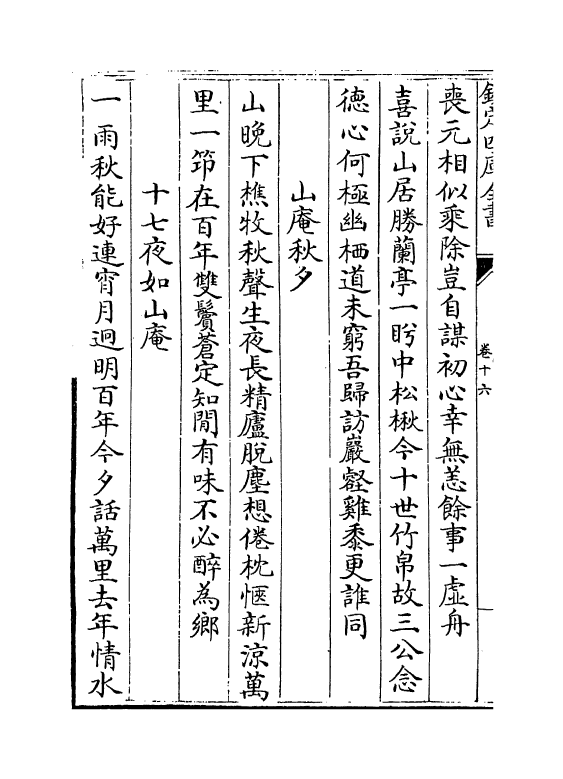 欽定四庫全書
卷十六
喪元相似乘除豈自謀初心幸無恙餘事一虛舟
喜說山居勝蘭亭一盻中松楸今十世竹帛故三公念
德心何極幽栖道未窮吾歸訪巖壑雞黍更誰同
山庵秋夕
山晚下樵牧秋聲生夜長精廬脫塵想倦枕愜新涼萬
里一笻在百年雙鬢蒼定知閒有味不必醉為鄉
十七夜如山庵
一雨秋能好連宵月逈明百年今夕話萬里去年情水